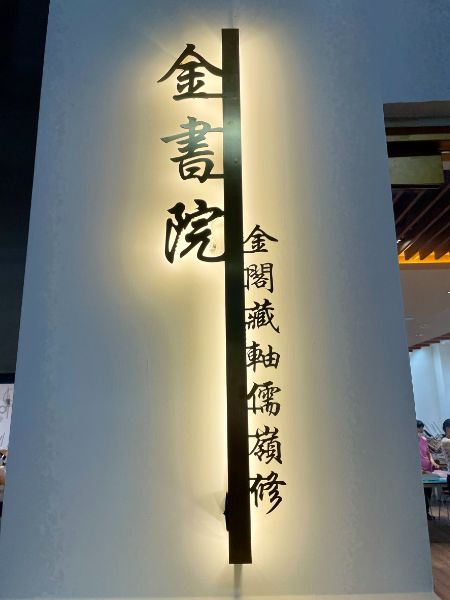 金書院
金閣藏軸儒嶺修